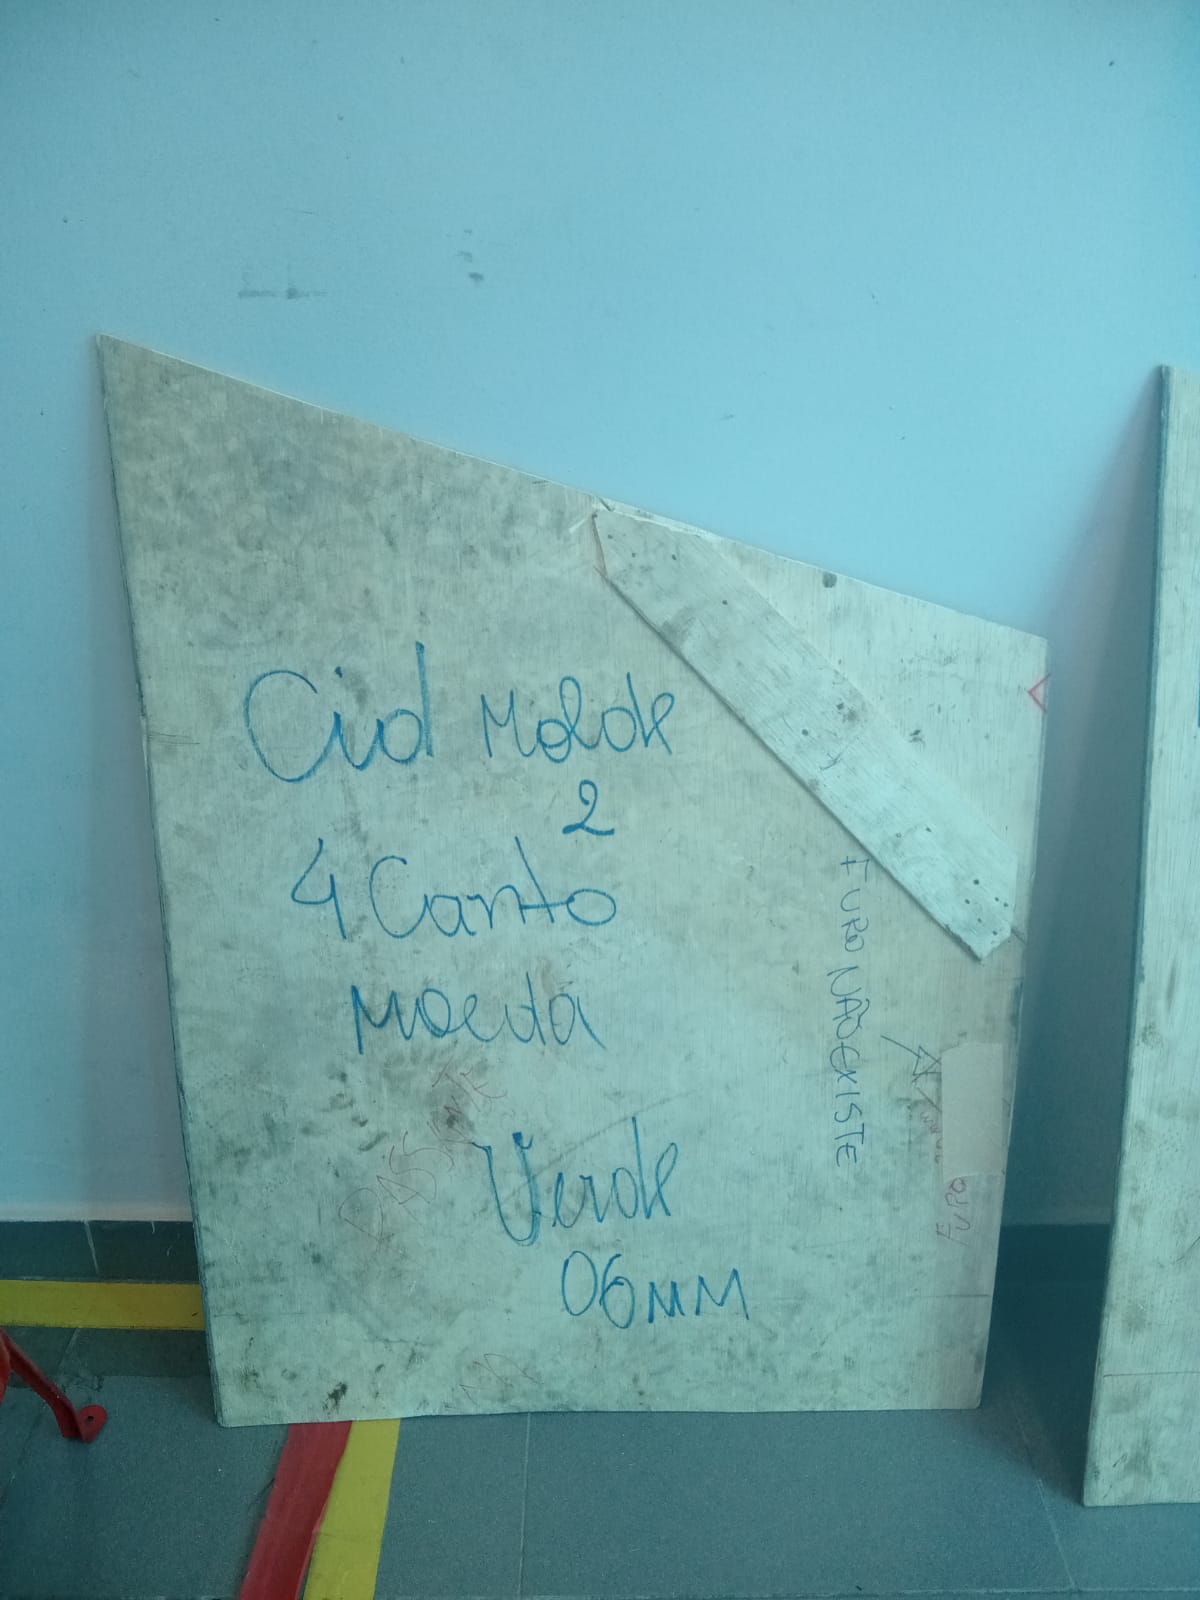 Cid Molde
2
4 Canto
Moeda
Verde
06MM
FURO NÃO EXISTE
PASSANTE
FURO